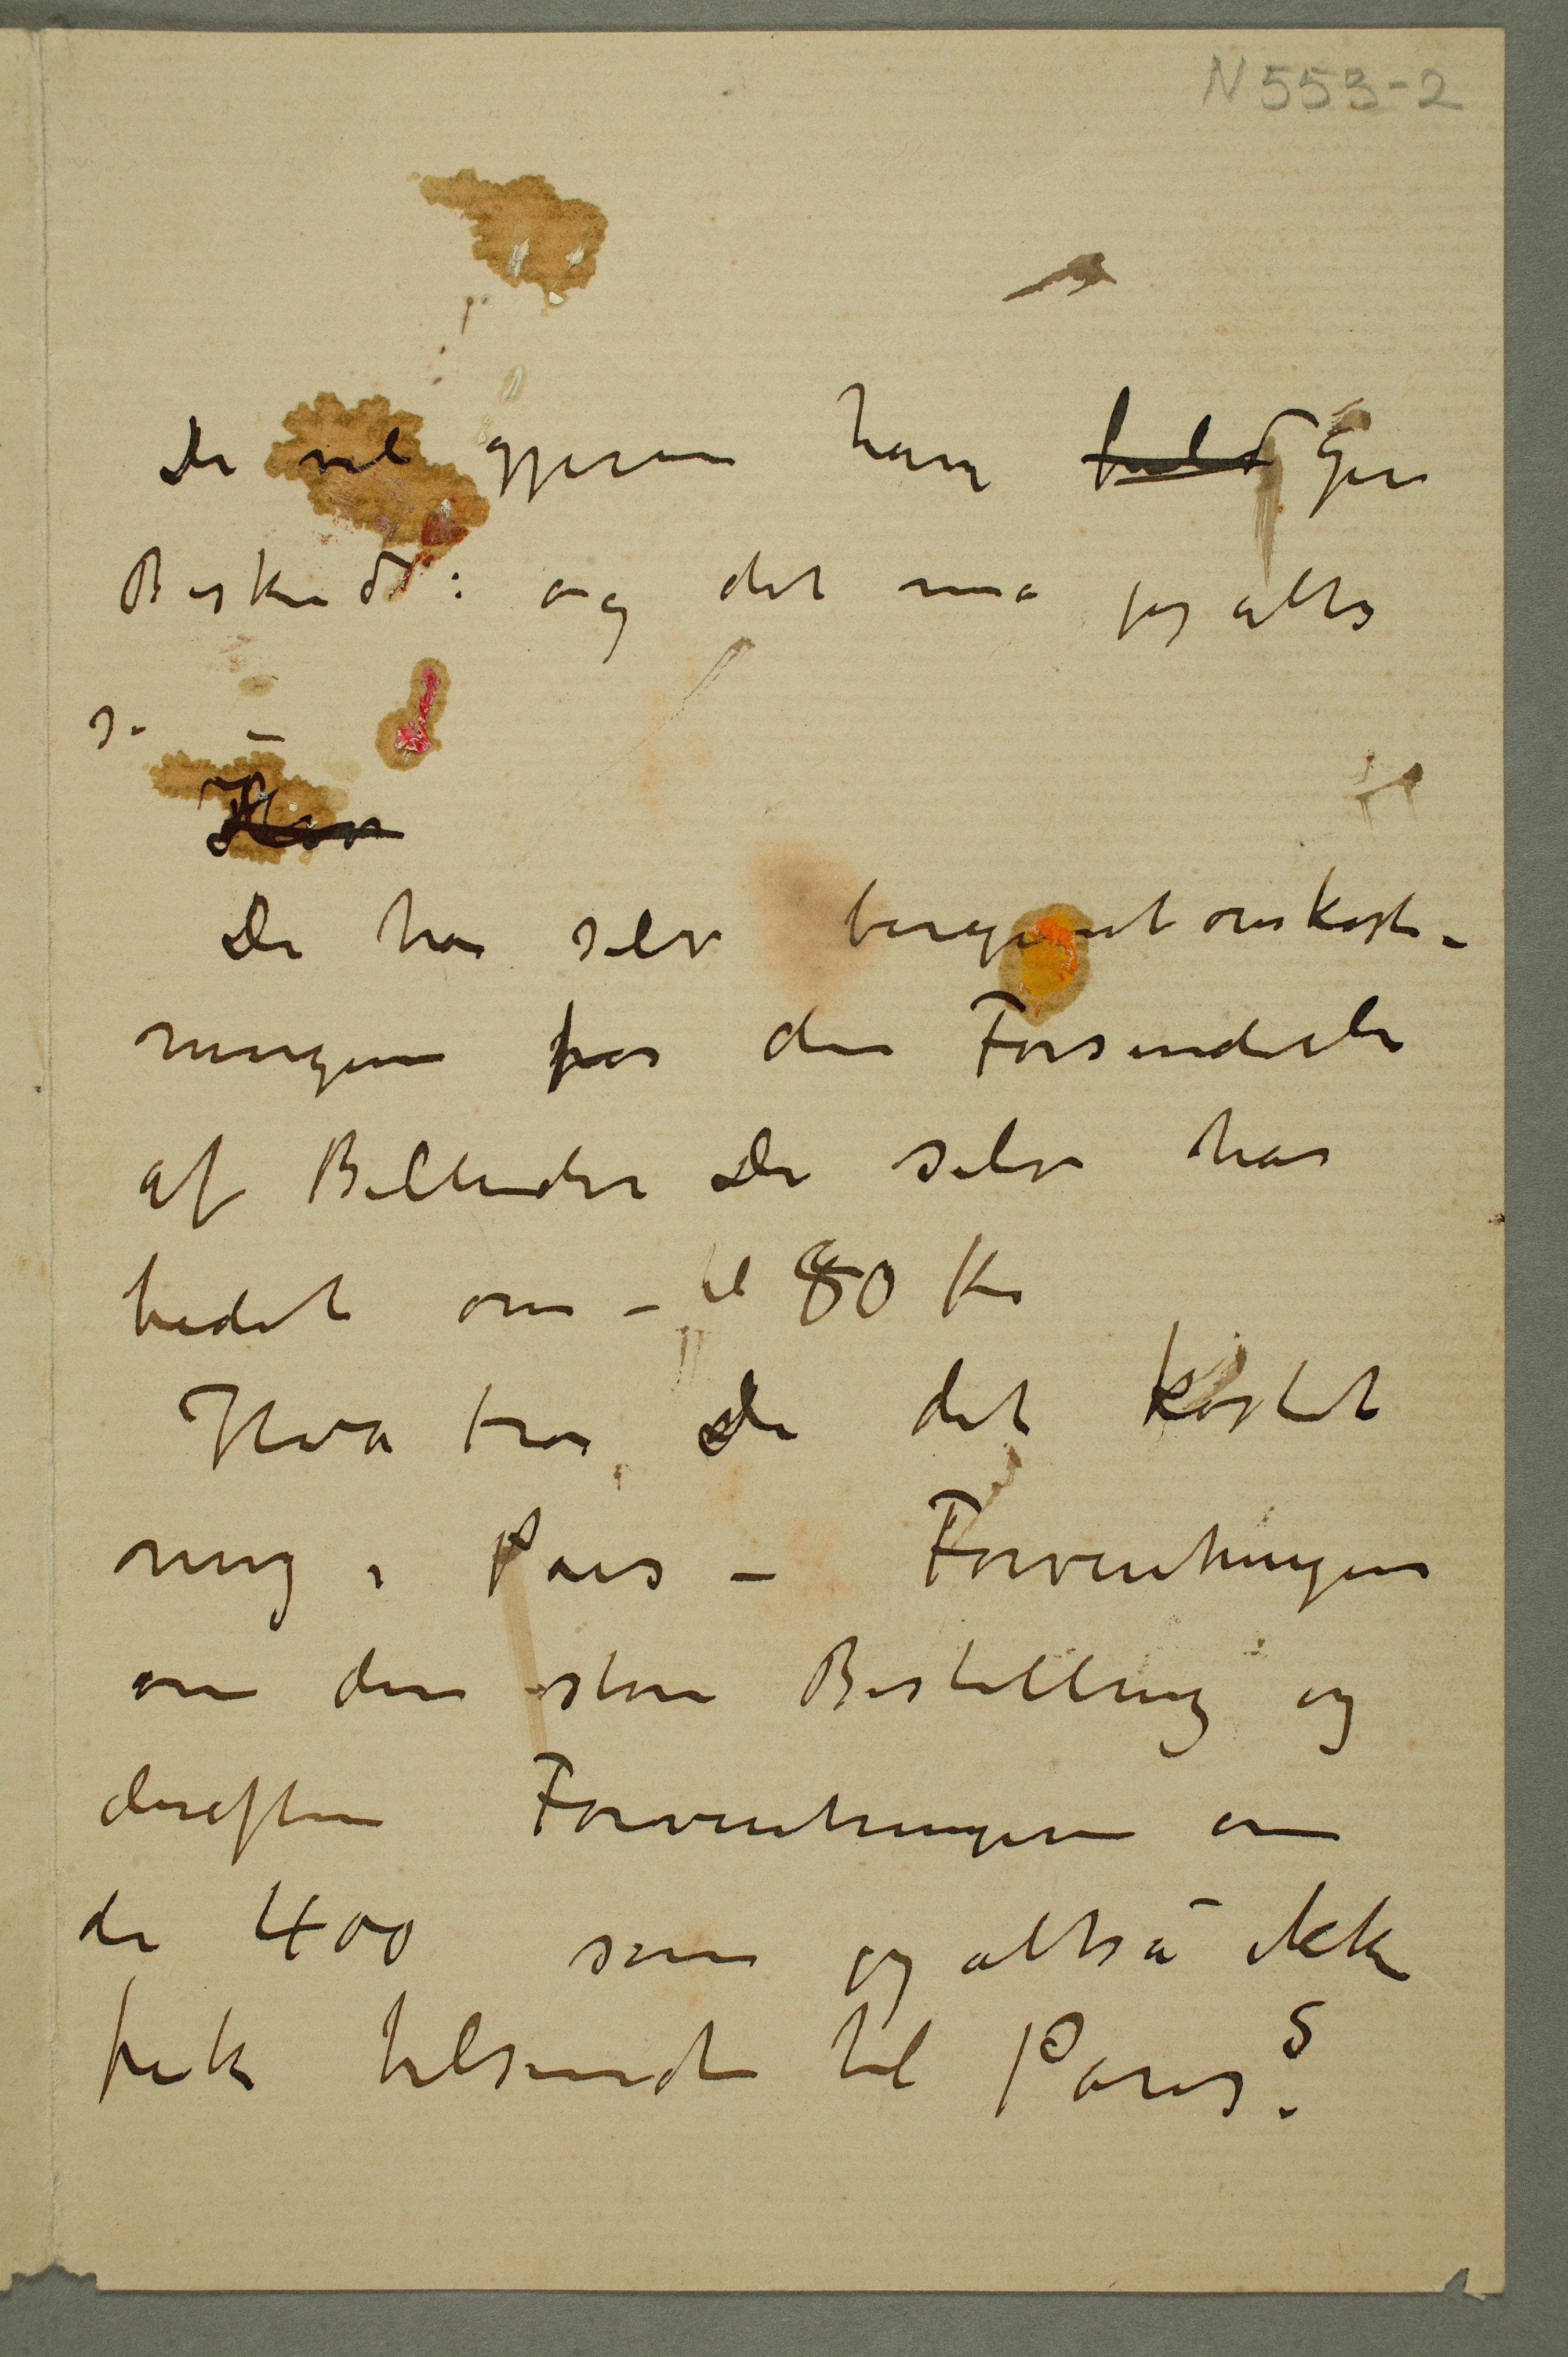 N 553-2
De vil gjerne have fuld Gjen
Besked: og det må jeg altså
si –
Hvor
De har selv beregnet omkost-
ningene for den Forsendelse
af Billeder De selv har
bedet om – til 80 Kr
Hva tror De det kostet
mig i Paris – Forventningen
om den store Bestilling og
derefter Forventningen om
de 400 som jeg altså ikke
fik tilsendt til Paris?